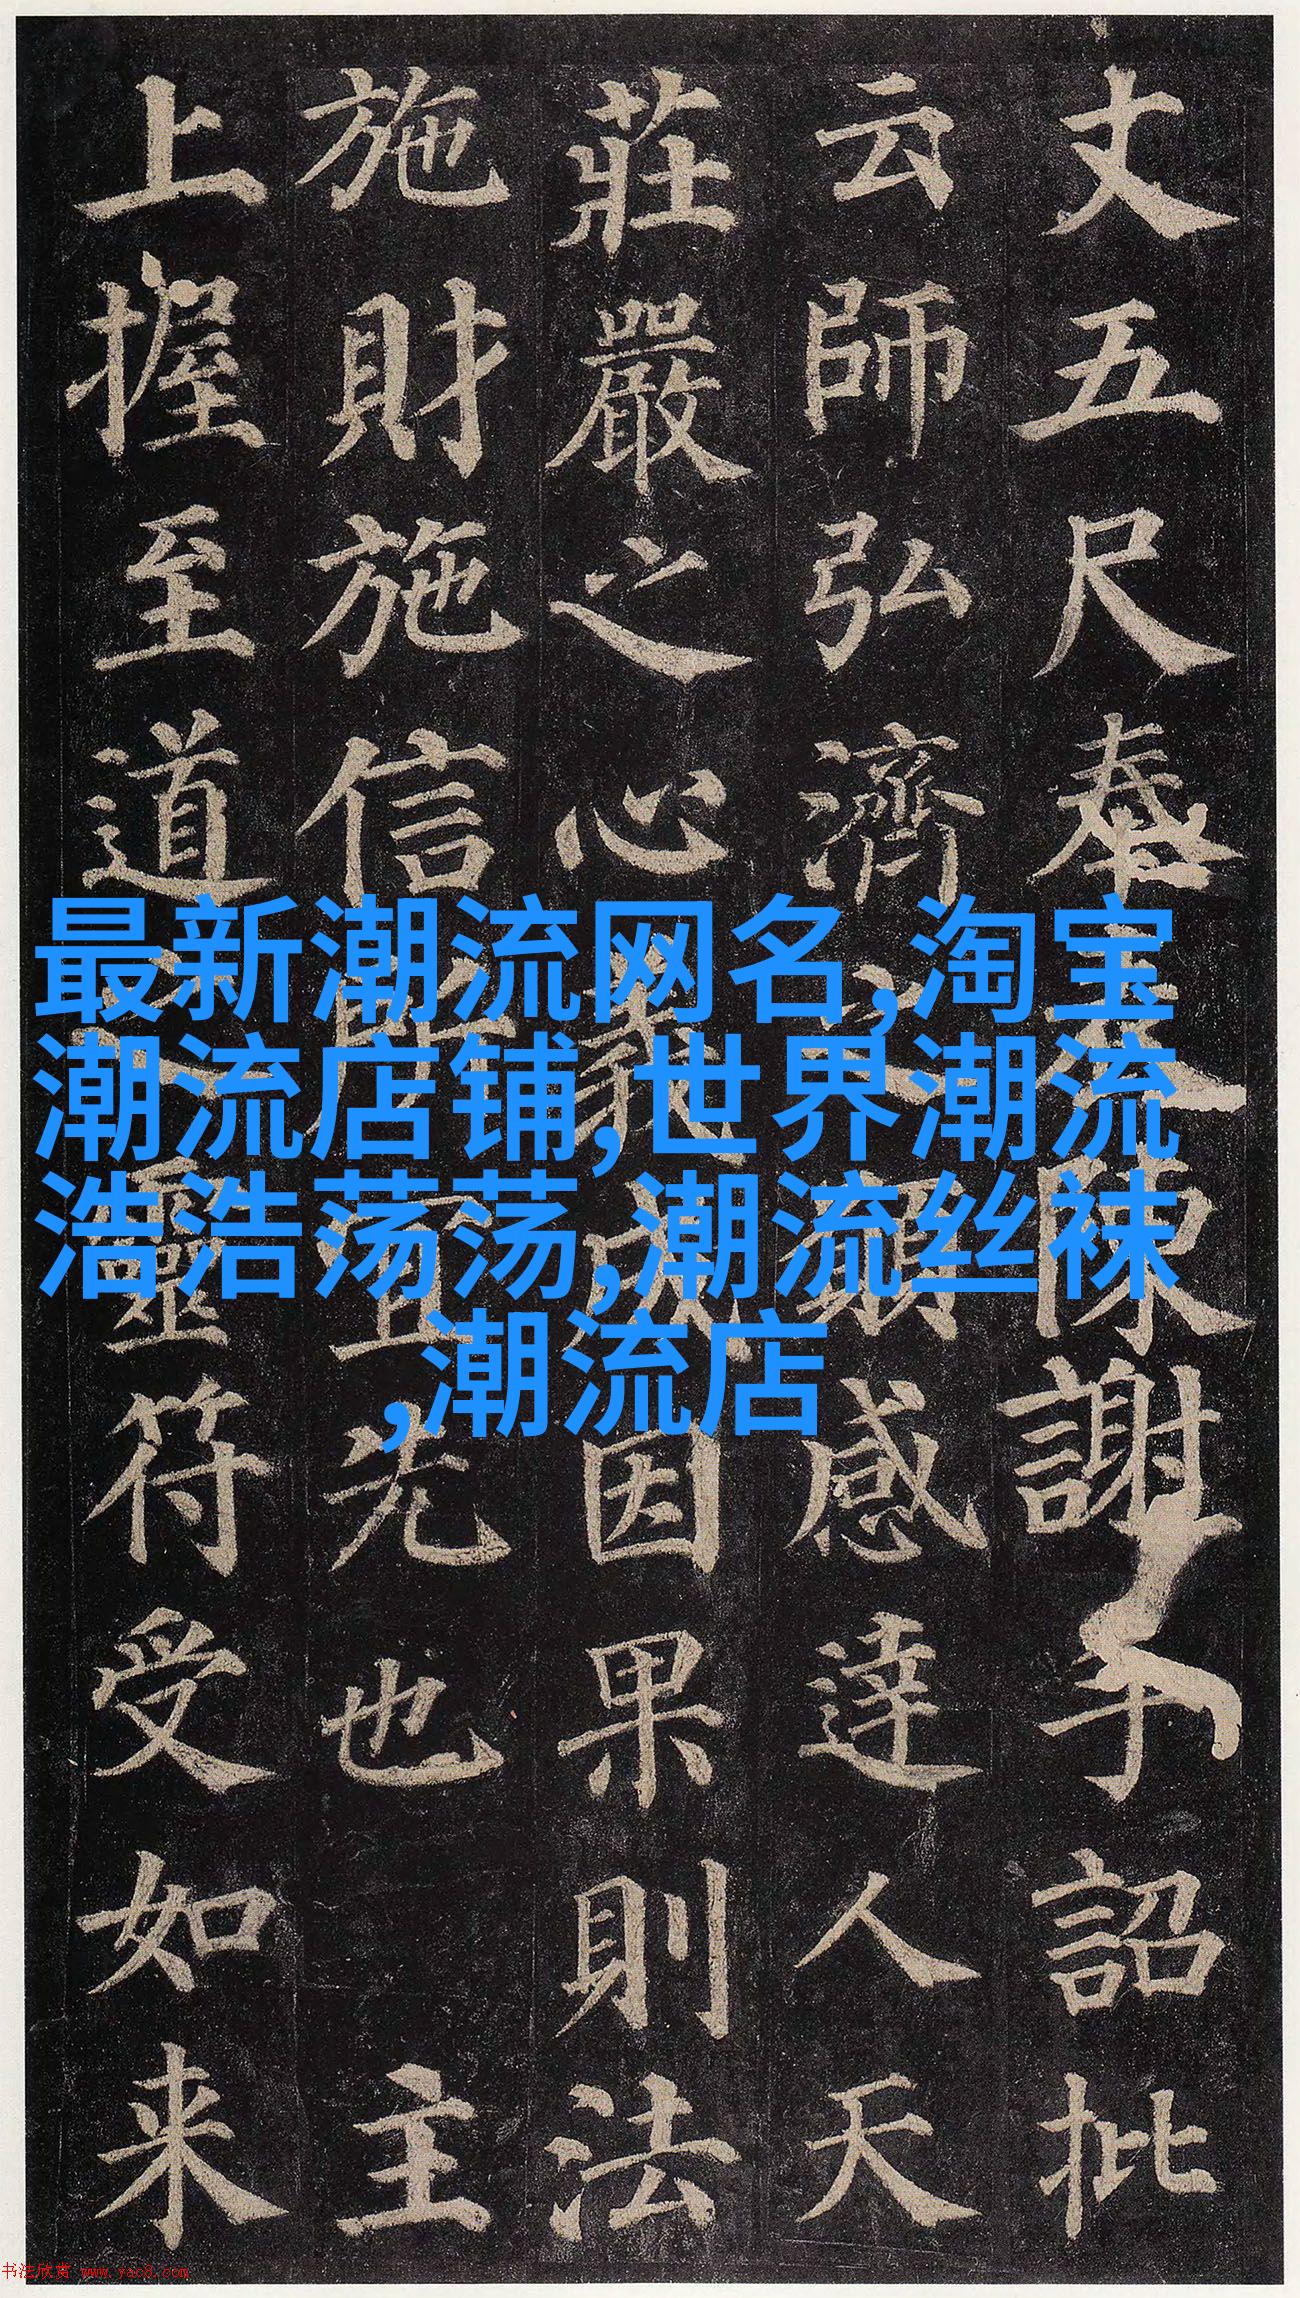 丈五尺奉陳謝手詔批
云師弘濟之願感達人天
莊嚴之心義成因果則法
施財施信所宜先也 主
上握至道之靈符受如来
最新潮流网名,淘宝
潮流店铺,世界潮流
浩浩荡荡,潮流丝袜
,潮流店
书法欣赏 www.yac8.com